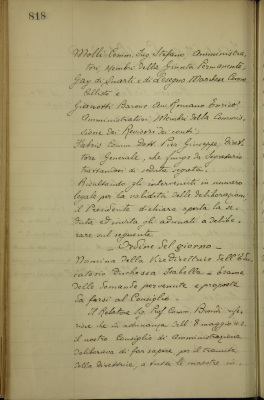 818
Molli Comm. Ing. Stefano, Amministra,
tori, Membri della Giunta Permanente,
Gay di Quarti e di Lesegno Marchese Carlo
Callisto e
Giannotti Barone Cav. Romano Enrico,
Amministratori, Membri della Commis,
sione dei Revisori dei conti.
Fabris Comm. Dott. Pier Giuseppe, Diret,
tore Generale, che funge da Segretario
trattandosi di seduta segreta.
Risultando gli intervenuti in numero
legale per la validità delle deliberazioni
il Presidente dichiara aperta la se,
duta ed invita gli adunati a delibe,
rare sul seguente
Ordine del giorno
Nomina della Vice Direttrice dell'Edu,
catorio Duchessa Isabella e esame
delle domande pervenute e proposte
da farsi al Consiglio.
Il Relatore Sig. Prof. Comm. Bondi rife,
risce che in adunanza dell' 8 maggio u.s.
il nostro Consiglio di Amministrazione
deliberava di far sapere pel tramite
della Direttrice, a tutte le maestre in,